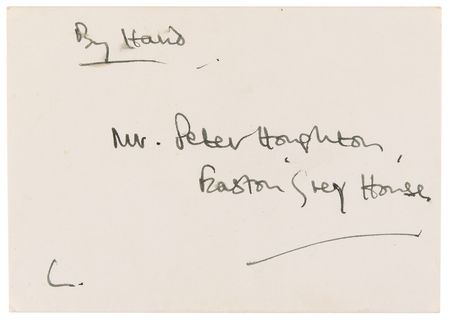 By Hand
Mr. Peter Houghton,
Easton Grey House.
C.